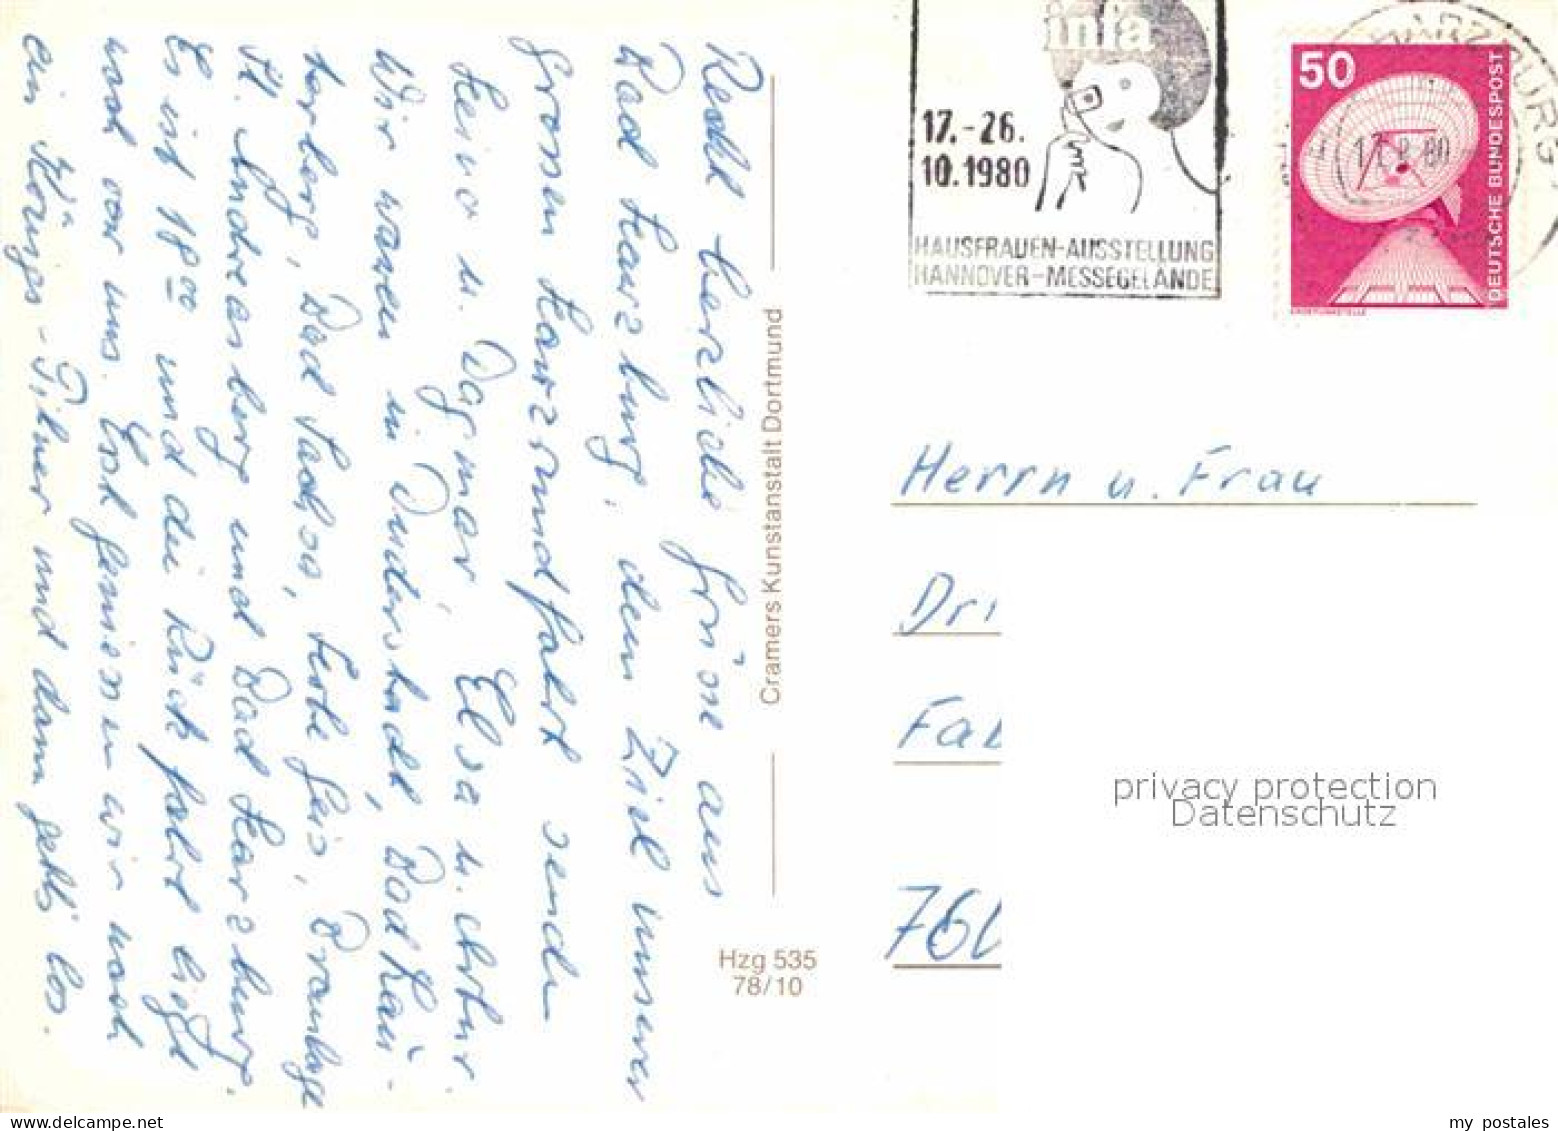 Recht herzliche Grüße aus
Bad Harzburg, dem Ziel unserer
grossen Harzrundfahrt senden
Heino u. Dagmar, Elsa u. Artur.
Wir waren in Duderstadt, Bad Lau-
terberg, Bad Sachsa, Hohegeiss, Braunlage
St. Andreasberg und Bad Harzburg.
Es ist 18 00 und die Rückfahrt liegt
noch vor uns. Erst geniessen wir noch
ein König-Pilsner und dann geht's los.
Cramers Kunstanstalt Dortmund
Hzg 535
78/10
infa
17.-26.
10.1980
HAUSFRAUEN-AUSSTELLUNG
HANNOVER-MESSEGELÄNDE
50
DEUTSCHE BUNDESPOST
ERDEFUNKSTELLE
HARZBURG 1
Herrn u. Frau
Dri
Fab
76
privacy protection
Datenschutz
my postales